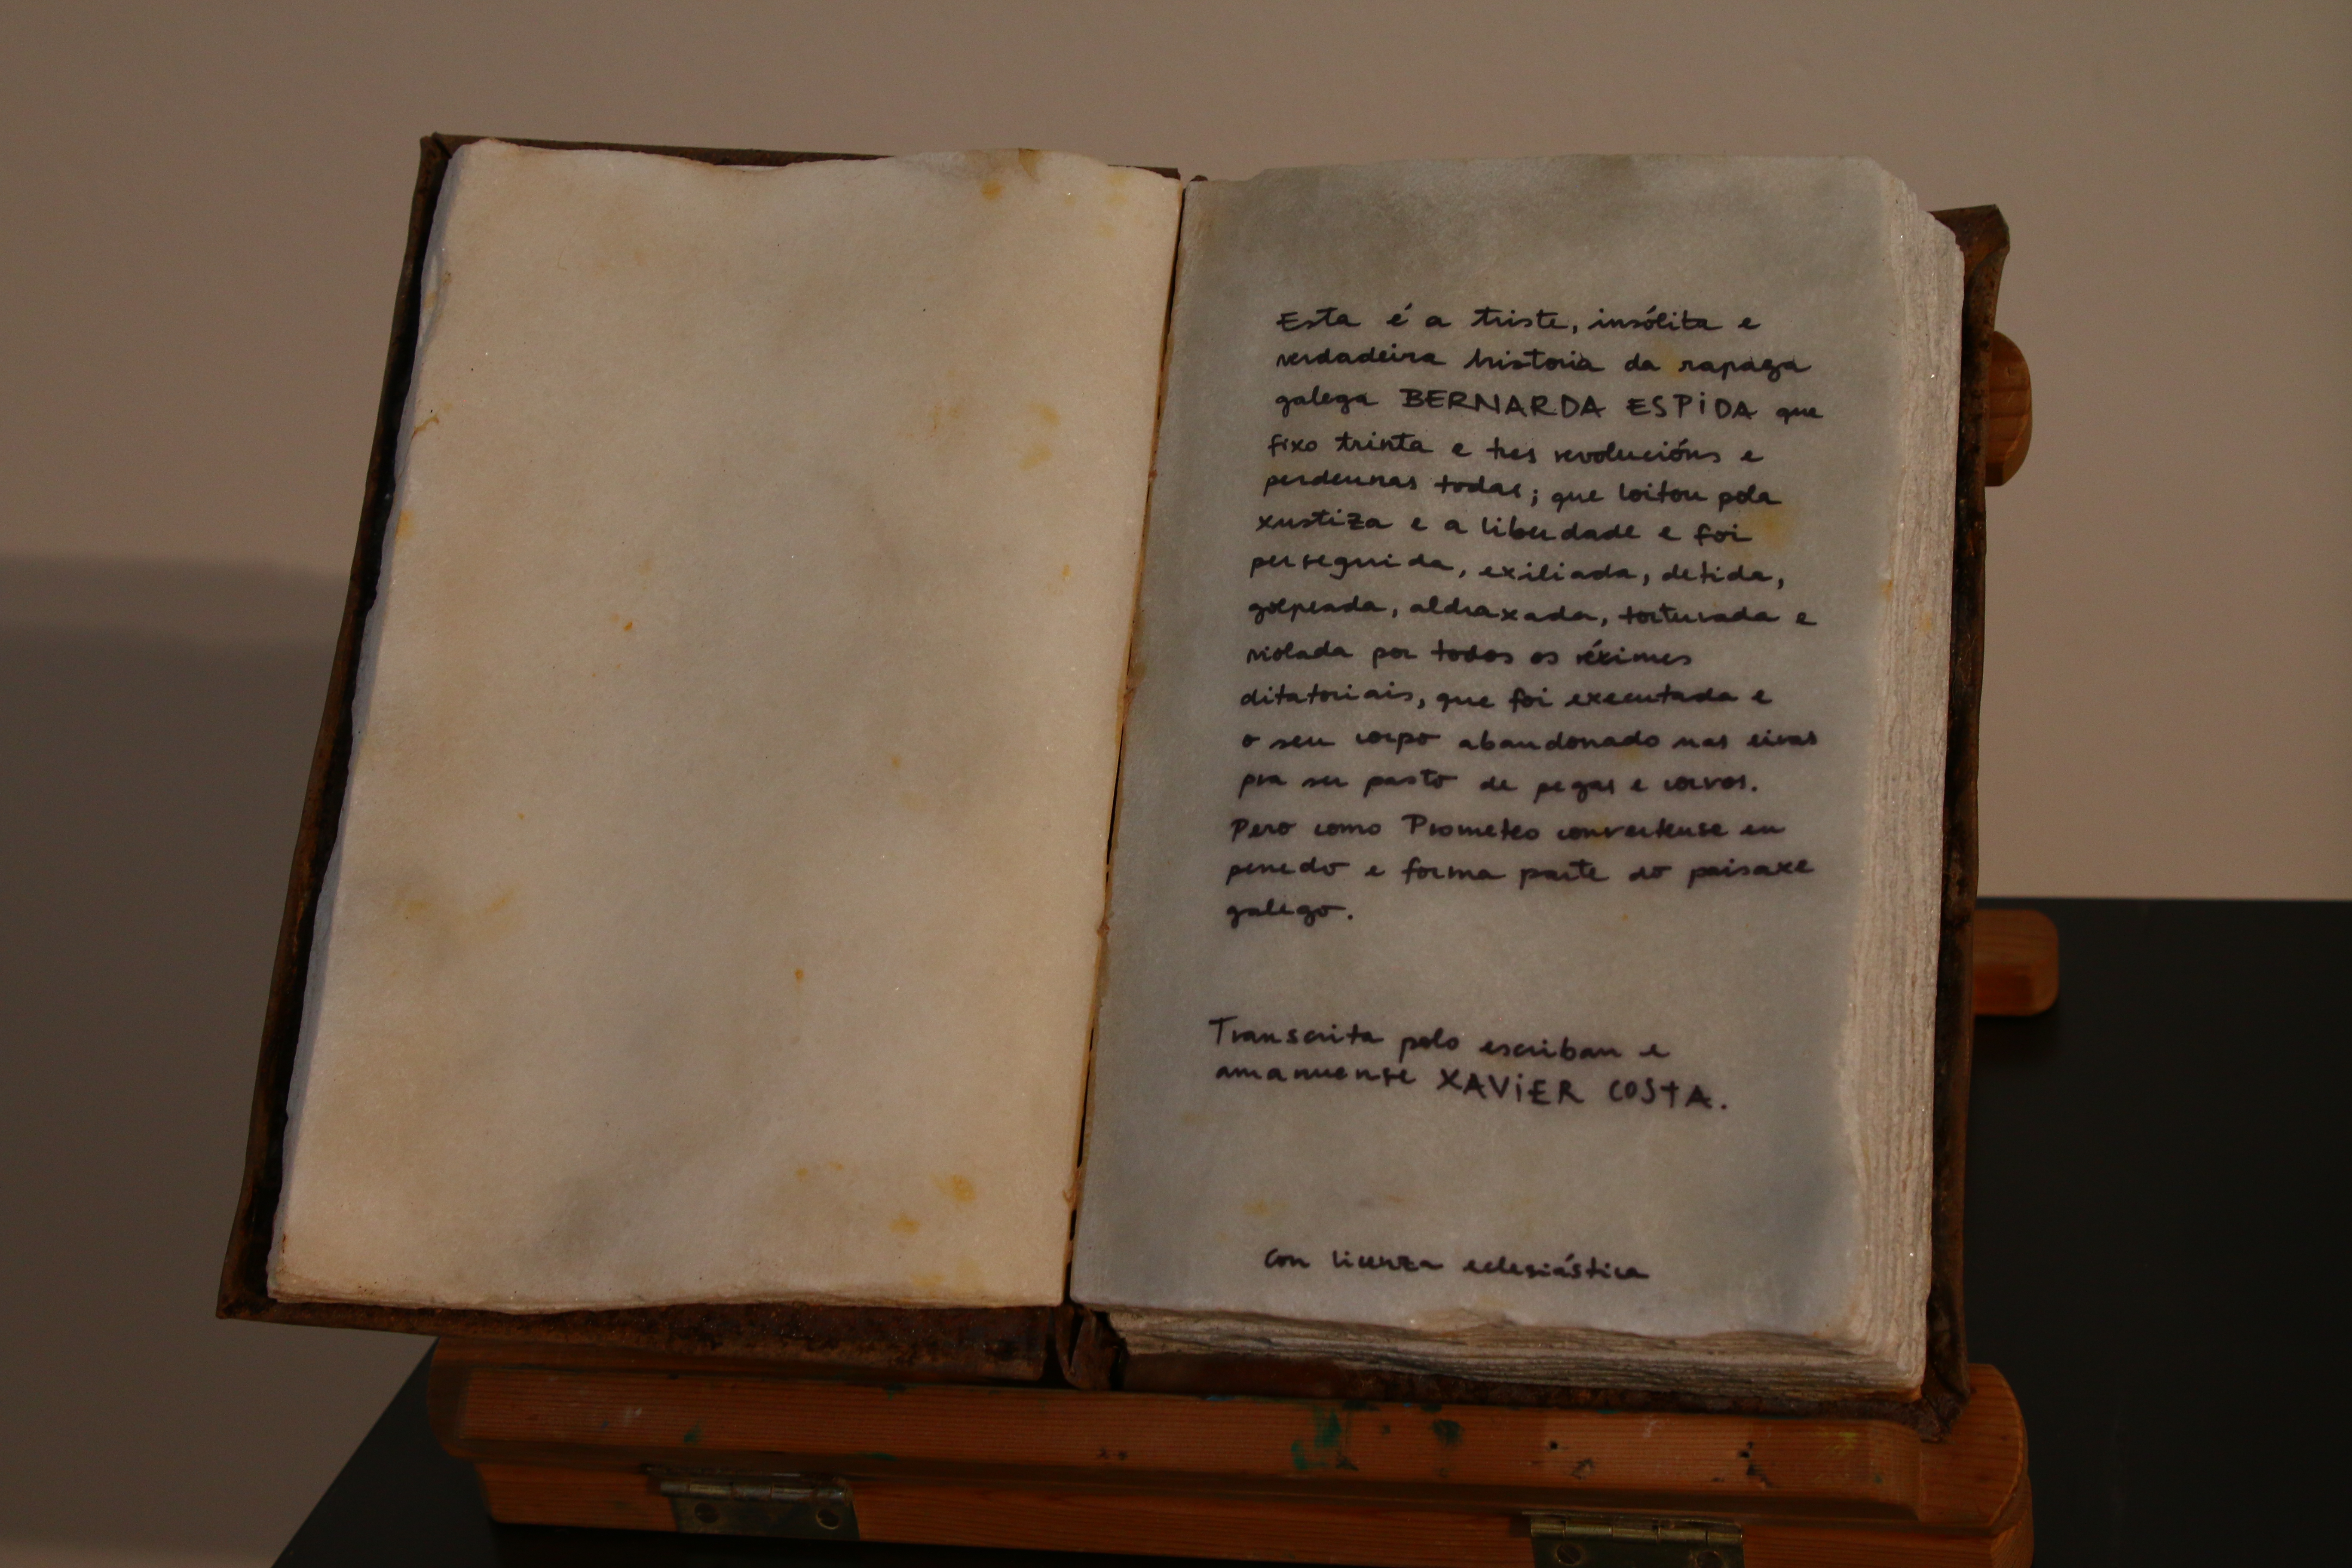 Esta é a triste, insólita e
verdadeira historia da rapaza
galega BERNARDA ESPIDA que
fixo trinta e tres revolucións e
perdeunas todas; que loitou pola
xustiza e a liberdade e foi
perseguida, exiliada, detida,
golpeada, aldraxada, torturada e
violada por todos os réximes
ditatoriais, que foi executada e
o seu corpo abandonado nas eiras
pra ser pasto de pegas e corvos.
Pero como Prometeo converteuse en
penedo e forma parte do paisaxe
galego.
Transcrita polo escriban e
amanuense XAVIER COSTA.
Con licenza eclesiástica